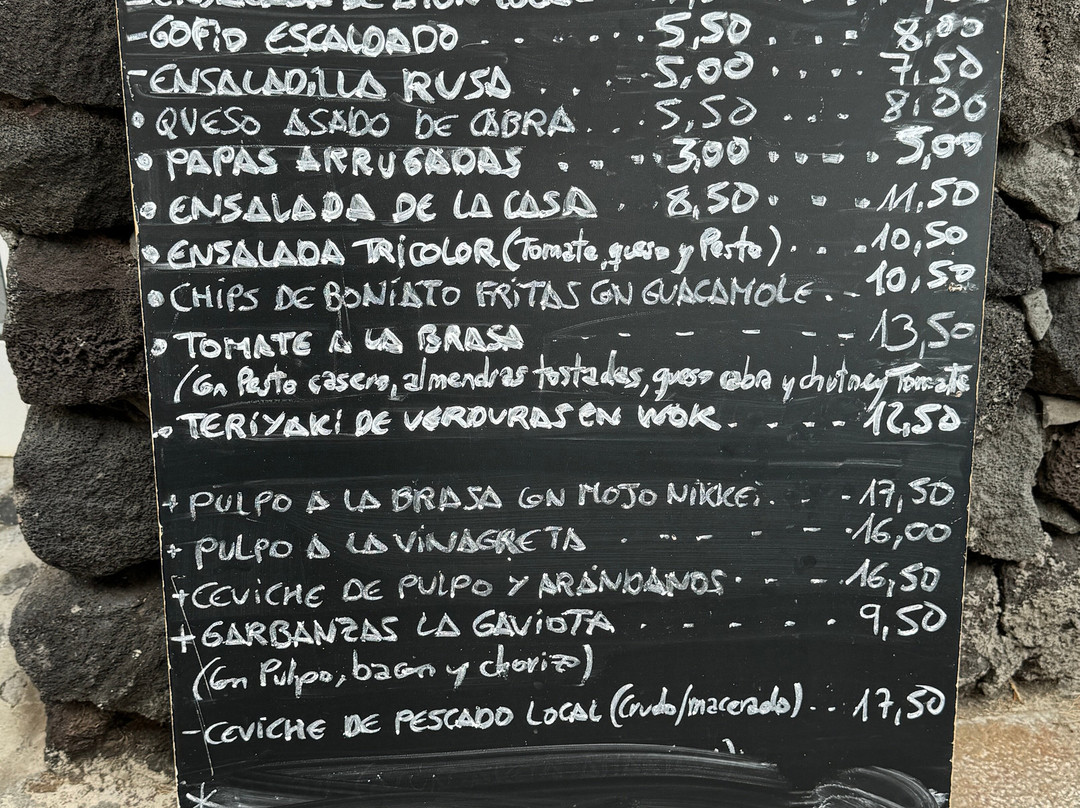 -GOFIO ESCALDADO . . . . . 5,50 . . . . . 8,00
-ENSALADILLA RUSA . . . 5,00 . . . . 7,50
• QUESO ASADO DE CABRA . . . 5,50 . . . . 8,00
• PAPAS ARRUGADAS . . . . . 3,00 . . . . . 5,00
• ENSALADA DE LA CASA . . 8,50 . . . . 11,50
• ENSALADA TRICOLOR (Tomate, queso y Pesto) . . . 10,50
• CHIPS DE BONIATO FRITAS CON GUACAMOLE . - - 10,50
• TOMATE A LA BRASA - - - - - 13,50
(Con Pesto casero, almendras tostadas, queso cabra y chutney Tomate
• TERIYAKI DE VERDURAS EN WOK . - - - - 12,50
+ PULPO A LA BRASA CON MOJO NIKKEI . - - 17,50
+ PULPO A LA VINAGRETA . - - - . 16,00
+ CEVICHE DE PULPO Y ARÁNDANOS . - - - 16,50
+ GARBANZAS LA GAVIOTA . . . . . . 9,50
(Con Pulpo, bacon y chorizo)
- CEVICHE DE PESCADO LOCAL (Crudo/macerado) . . . 17,50
*